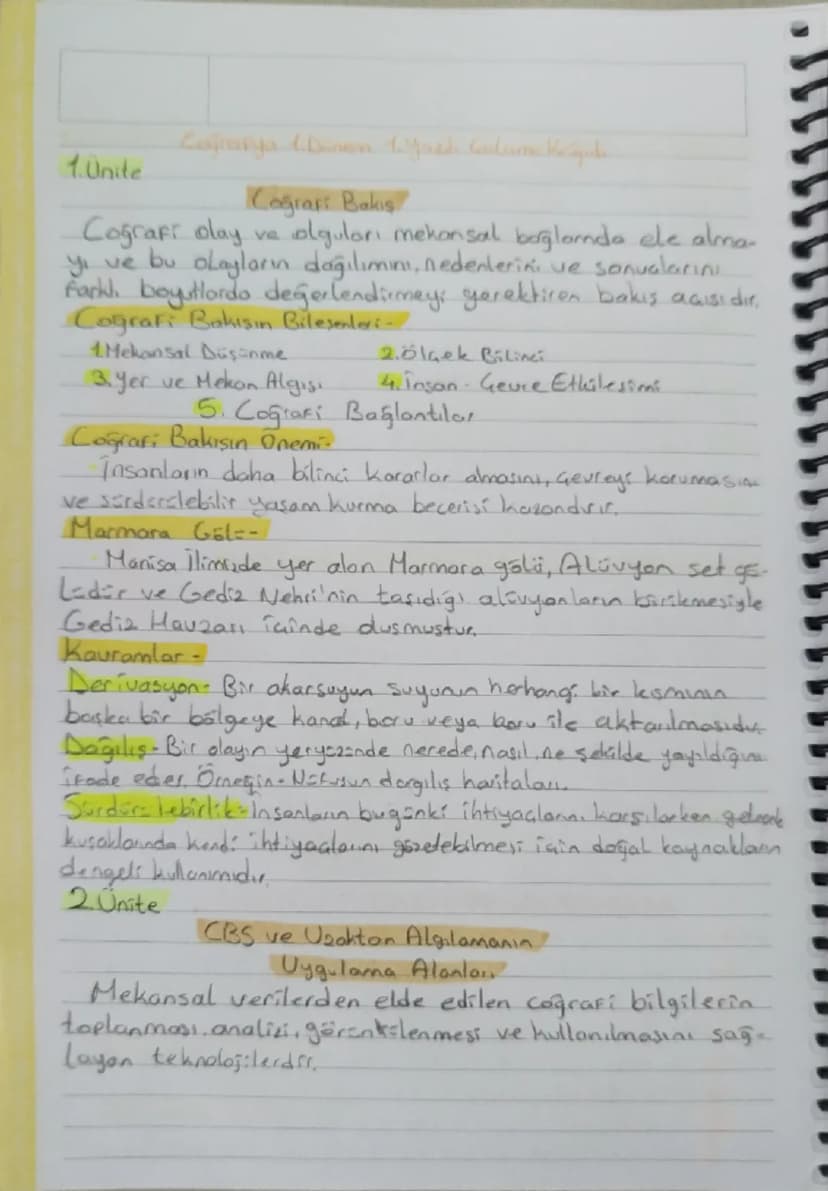 Coğrafya 1.Dönem 1.Yazılı Çalışma Kağıdı
1.Ünite
Coğrafi Bakış
Coğrafi olay ve olguları mekansal bağlamda ele alma-
yı ve bu olayların dağılımını, nedenlerini ve sonuçlarını
farklı boyutlarda değerlendirmeyi gerektiren bakış açısıdır.
Coğrafi Bakışın Bileşenleri-
1.Mekansal Düşünme 2.Ölçek Bilinci
3.Yer ve Mekan Algısı 4.İnsan-Çevre Etkileşimi
5. Coğrafi Bağlantılar
Coğrafi Bakışın Önemi-
İnsanların daha bilinci kararlar almasını, çevreyi korumasını
ve sürdürülebilir yaşam kurma becerisi kazandırır.
Marmara Gölü-
Manisa İlimizde yer alan Marmara gölü, Alüvyon set gö-
lüdür ve Gediz Nehri'nin taşıdığı alüvyonların birikmesiyle
Gediz Havzası içinde oluşmuştur.
Kavramlar-
Derivasyon- Bir akarsuyun suyunun herhangi bir kısmının
başka bir bölgeye kanal, boru veya boru ile aktarılmasıdır.
Dağılış- Bir olayın yeryüzünde nerede, nasıl, ne şekilde yayıldığını
ifade eder. Örneğin- Nüfusun dargılış haritaları.
Sürdürülebirlik- İnsanların bugünkü ihtiyaçlarını karşılarken gelecek
kuşaklarında kendi ihtiyaçlarını gözetebilmesi için doğal kaynakların
dengeli kullanımıdır.
2.Ünite
CBS ve Uzaktan Algılamanın
Uygulama Alanları
Mekansal verilerden elde edilen coğrafi bilgilerin
toplanması, analizi, görüntülenmesi ve kullanılmasını sağ-
layan teknolojilerdir.